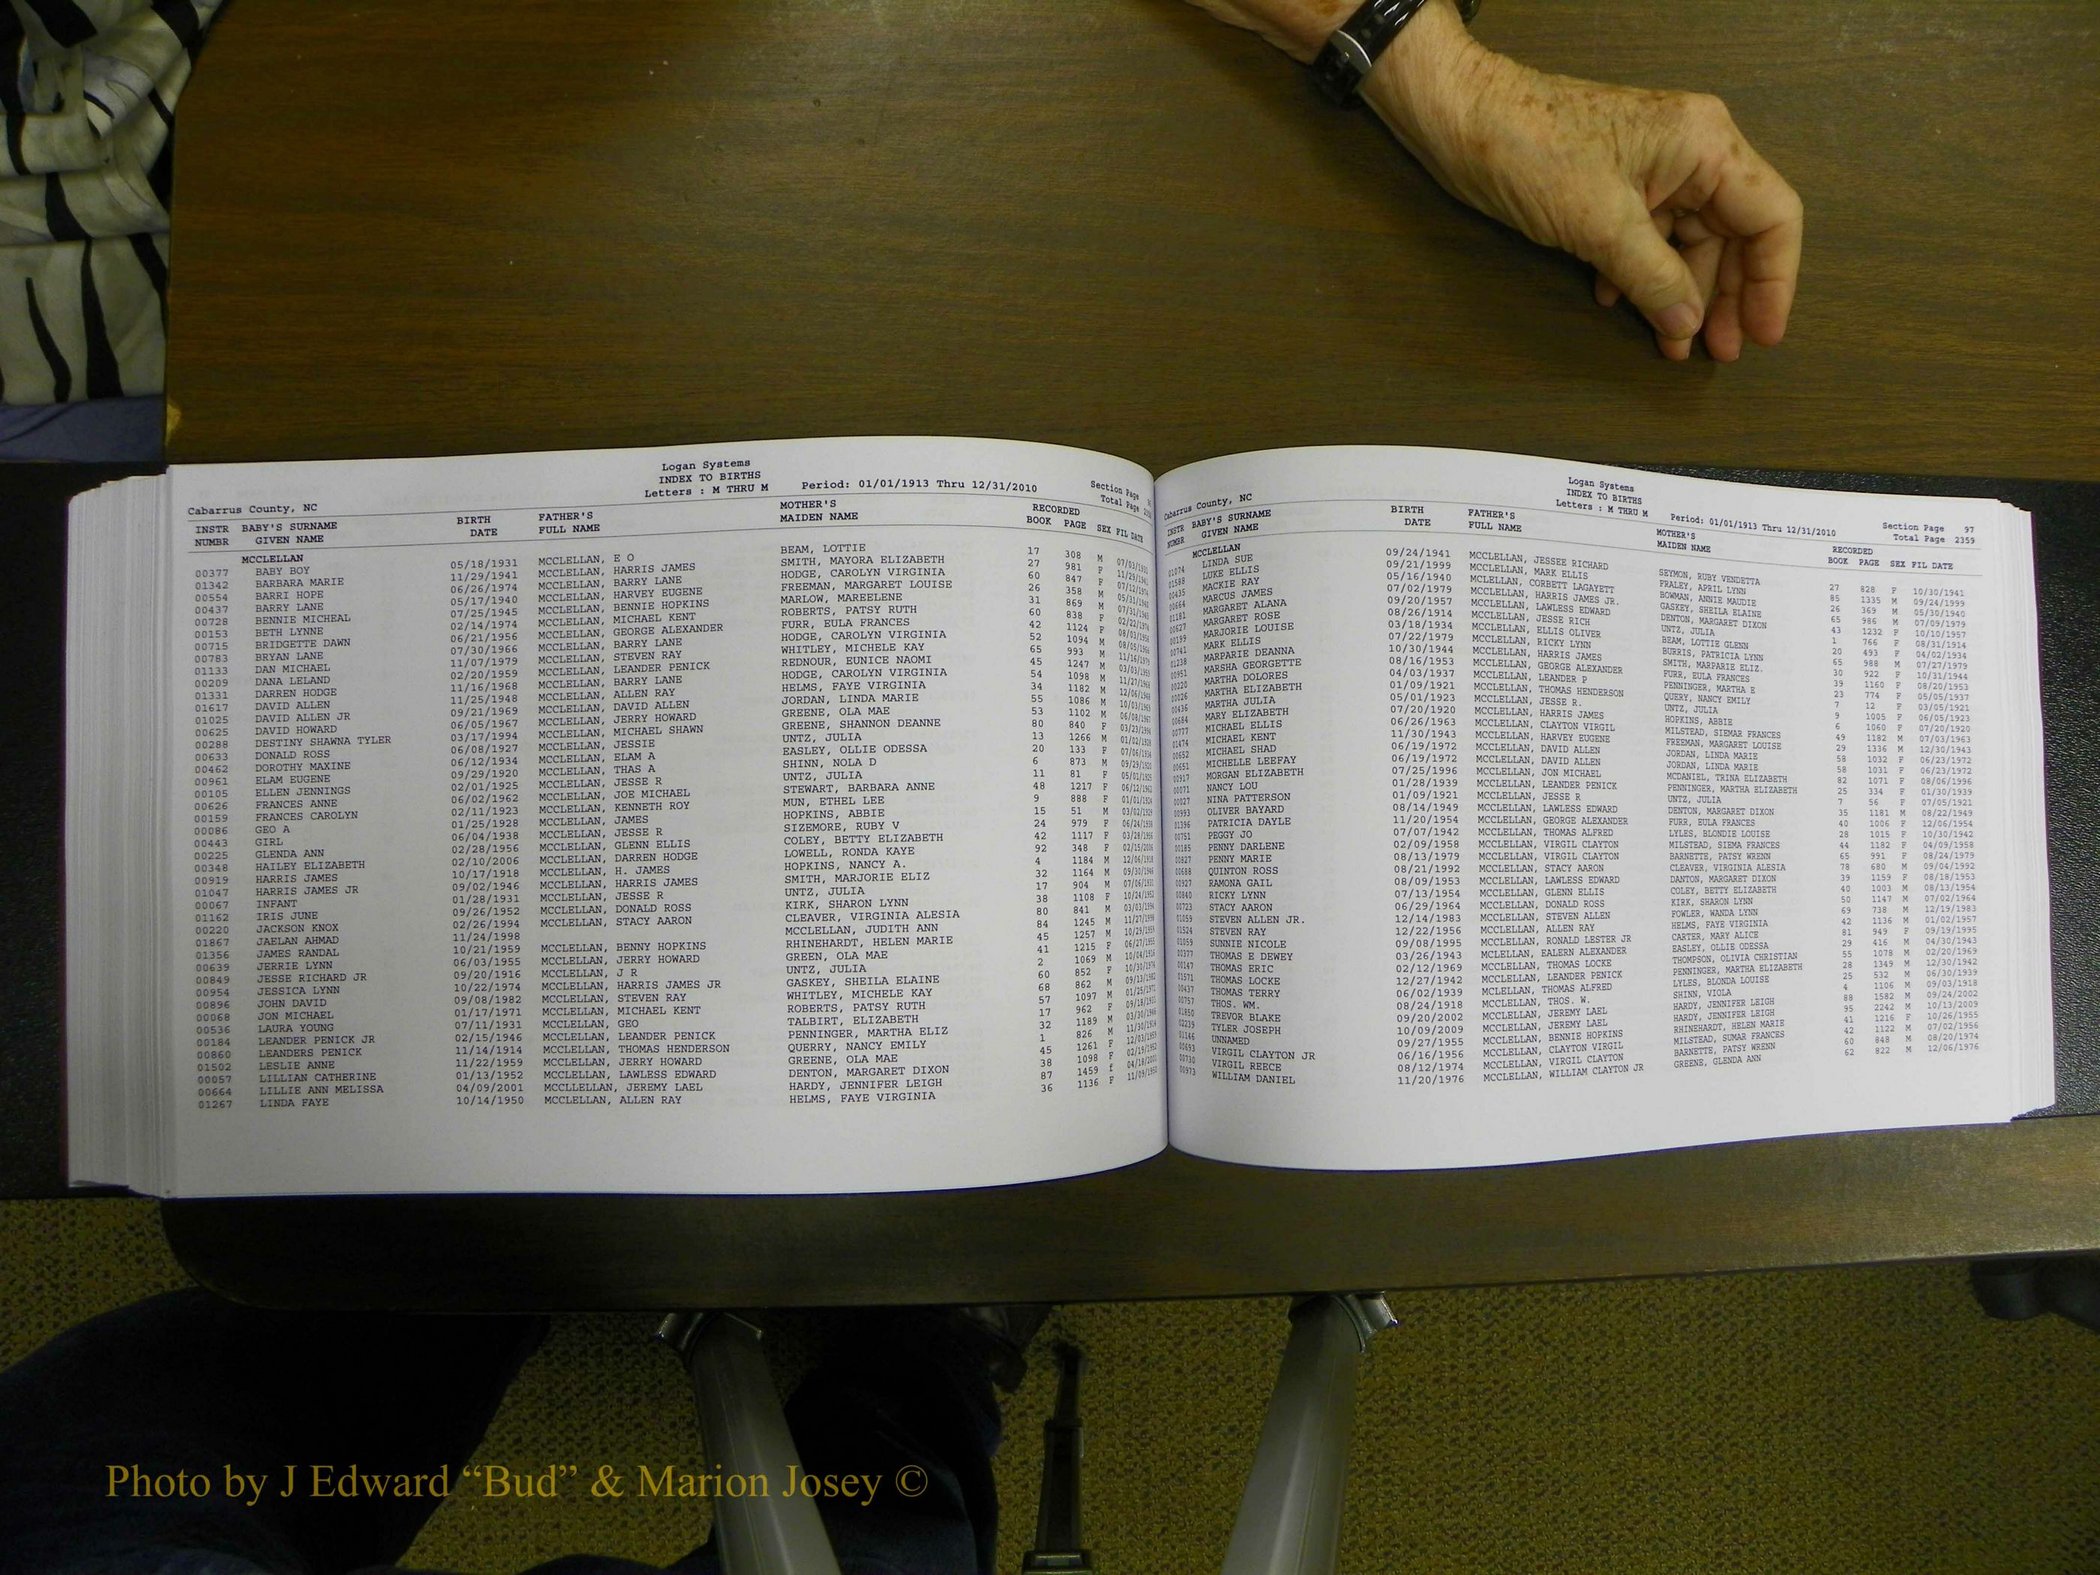 Logan Systems
INDEX TO BIRTHS
Letters : M THRU M Period: 01/01/1913 Thru 12/31/2010
Cabarrus County, NC Section Page
Total Page
INSTR BABY'S SURNAME BIRTH FATHER'S MOTHER'S RECORDED
NUMBR GIVEN NAME DATE FULL NAME MAIDEN NAME BOOK PAGE SEX FIL DATE
MCCLELLAN
00377 BABY BOY 05/18/1931 MCCLELLAN, E O BEAM, LOTTIE 17 308 M 07/03/1931
01342 BARBARA MARIE 11/29/1941 MCCLELLAN, HARRIS JAMES SMITH, MAYORA ELIZABETH 27 981 F 11/29/1941
00554 BARRI HOPE 06/26/1974 MCCLELLAN, BARRY LANE HODGE, CAROLYN VIRGINIA 60 847 F 07/12/1974
00437 BARRY LANE 05/17/1940 MCCLELLAN, HARVEY EUGENE FREEMAN, MARGARET LOUISE 26 358 M 05/31/1940
00728 BENNIE MICHEAL 07/25/1945 MCCLELLAN, BENNIE HOPKINS MARLOW, MAREELENE 31 869 M 07/31/1945
00153 BETH LYNNE 02/14/1974 MCCLELLAN, MICHAEL KENT ROBERTS, PATSY RUTH 60 838 F 02/22/1974
00715 BRIDGETTE DAWN 06/21/1956 MCCLELLAN, GEORGE ALEXANDER FURR, EULA FRANCES 42 1124 F 08/03/1956
00783 BRYAN LANE 07/30/1966 MCCLELLAN, BARRY LANE HODGE, CAROLYN VIRGINIA 52 1094 M 08/05/1966
01133 DAN MICHAEL 11/07/1979 MCCLELLAN, STEVEN RAY WHITLEY, MICHELE KAY 65 993 M 11/16/1979
00209 DANA LELAND 02/20/1959 MCCLELLAN, LEANDER PENICK REDNOUR, EUNICE NAOMI 45 1247 M 03/03/1959
01331 DARREN HODGE 11/16/1968 MCCLELLAN, BARRY LANE HODGE, CAROLYN VIRGINIA 54 1098 M 11/27/1968
01617 DAVID ALLEN 11/25/1948 MCCLELLAN, ALLEN RAY HELMS, FAYE VIRGINIA 34 1182 M 12/06/1948
01025 DAVID ALLEN JR 09/21/1969 MCCLELLAN, DAVID ALLEN JORDAN, LINDA MARIE 55 1086 M 10/03/1969
00625 DAVID HOWARD 06/05/1967 MCCLELLAN, JERRY HOWARD GREENE, OLA MAE 53 1102 M 06/08/1967
00288 DESTINY SHAWNA TYLER 03/17/1994 MCCLELLAN, MICHAEL SHAWN GREENE, SHANNON DEANNE 80 840 F 03/23/1994
00633 DONALD ROSS 06/08/1927 MCCLELLAN, JESSIE UNTZ, JULIA 13 1266 M 01/02/1928
00462 DOROTHY MAXINE 06/12/1934 MCCLELLAN, ELAM A EASLEY, OLLIE ODESSA 20 133 F 07/06/1934
00961 ELAM EUGENE 09/29/1920 MCCLELLAN, THAS A SHINN, NOLA D 6 873 M 09/29/1920
00105 ELLEN JENNINGS 02/01/1925 MCCLELLAN, JESSE R UNTZ, JULIA 11 81 F 05/01/1925
00626 FRANCES ANNE 06/02/1962 MCCLELLAN, JOE MICHAEL STEWART, BARBARA ANNE 48 1217 F 06/12/1962
00159 FRANCES CAROLYN 02/11/1923 MCCLELLAN, KENNETH ROY MUN, ETHEL LEE 9 888 F 01/01/1924
00086 GEO A 01/25/1928 MCCLELLAN, JAMES HOPKINS, ABBIE 15 51 M 03/02/1929
00443 GIRL 06/04/1938 MCCLELLAN, JESSE R SIZEMORE, RUBY V 24 979 F 06/24/1938
00225 GLENDA ANN 02/28/1956 MCCLELLAN, GLENN ELLIS COLEY, BETTY ELIZABETH 42 1117 F 03/28/1956
00348 HAILEY ELIZABETH 02/10/2006 MCCLELLAN, DARREN HODGE LOWELL, RONDA KAYE 92 348 F 02/15/2006
00919 HARRIS JAMES 10/17/1918 MCCLELLAN, H. JAMES HOPKINS, NANCY A. 4 1184 M 12/06/1918
01047 HARRIS JAMES JR 09/02/1946 MCCLELLAN, HARRIS JAMES SMITH, MARJORIE ELIZ 32 1164 M 09/30/1946
00067 INFANT 01/28/1931 MCCLELLAN, JESSE R UNTZ, JULIA 17 904 M 07/06/1931
01162 IRIS JUNE 09/26/1952 MCCLELLAN, DONALD ROSS KIRK, SHARON LYNN 38 1108 F 10/24/1952
00220 JACKSON KNOX 02/26/1994 MCCLELLAN, STACY AARON CLEAVER, VIRGINIA ALESIA 80 841 M 03/03/1994
01867 JAELAN AHMAD 11/24/1998 MCCLELLAN, JUDITH ANN 84 1245 M 11/27/1998
01356 JAMES RANDAL 10/21/1959 MCCLELLAN, BENNY HOPKINS RHINEHARDT, HELEN MARIE 45 1257 M 10/29/1959
00639 JERRIE LYNN 06/03/1955 MCCLELLAN, JERRY HOWARD GREEN, OLA MAE 41 1215 F 06/27/1955
00849 JESSE RICHARD JR 09/20/1916 MCCLELLAN, J R UNTZ, JULIA 2 1069 M 10/04/1916
00954 JESSICA LYNN 10/22/1974 MCCLELLAN, HARRIS JAMES JR GASKEY, SHEILA ELAINE 60 852 F 10/30/1974
00896 JOHN DAVID 09/08/1982 MCCLELLAN, STEVEN RAY WHITLEY, MICHELE KAY 68 862 M 09/13/1982
00068 JON MICHAEL 01/17/1971 MCCLELLAN, MICHAEL KENT ROBERTS, PATSY RUTH 57 1097 M 01/25/1971
00536 LAURA YOUNG 07/11/1931 MCCLELLAN, GEO TALBIRT, ELIZABETH 17 962 F 09/18/1931
00184 LEANDER PENICK JR 02/15/1946 MCCLELLAN, LEANDER PENICK PENNINGER, MARTHA ELIZ 32 1189 M 03/30/1946
00860 LEANDERS PENICK 11/14/1914 MCCLELLAN, THOMAS HENDERSON QUERRY, NANCY EMILY 1 826 M 11/30/1914
01502 LESLIE ANNE 11/22/1959 MCCLELLAN, JERRY HOWARD GREENE, OLA MAE 45 1261 F 12/03/1959
00057 LILLIAN CATHERINE 01/13/1952 MCCLELLAN, LAWLESS EDWARD DENTON, MARGARET DIXON 38 1098 F 02/19/1952
00664 LILLIE ANN MELISSA 04/09/2001 MCCLLELLAN, JEREMY LAEL HARDY, JENNIFER LEIGH 87 1459 f 04/18/2001
01267 LINDA FAYE 10/14/1950 MCCLELLAN, ALLEN RAY HELMS, FAYE VIRGINIA 36 1136 F 11/09/1950
Logan Systems
INDEX TO BIRTHS
Letters : M THRU M Period: 01/01/1913 Thru 12/31/2010
Cabarrus County, NC Section Page 97
Total Page 2359
INSTR BABY'S SURNAME BIRTH FATHER'S MOTHER'S RECORDED
NUMBR GIVEN NAME DATE FULL NAME MAIDEN NAME BOOK PAGE SEX FIL DATE
MCCLELLAN
01074 LINDA SUE 09/24/1941 MCCLELLAN, JESSEE RICHARD SEYMON, RUBY VENDETTA 27 828 F 10/30/1941
01588 LUKE ELLIS 09/21/1999 MCCLELLAN, MARK ELLIS FRALEY, APRIL LYNN 85 1335 M 09/24/1999
00435 MACKIE RAY 05/16/1940 MCLELLAN, CORBETT LAGAYETT BOWMAN, ANNIE MAUDIE 26 369 M 05/30/1940
00664 MARCUS JAMES 07/02/1979 MCCLELLAN, HARRIS JAMES JR. GASKEY, SHEILA ELAINE 65 986 M 07/09/1979
01181 MARGARET ALANA 09/20/1957 MCCLELLAN, LAWLESS EDWARD DENTON, MARGARET DIXON 43 1232 F 10/10/1957
00627 MARGARET ROSE 08/26/1914 MCCLELLAN, JESSE RICH UNTZ, JULIA 1 766 F 08/31/1914
00199 MARJORIE LOUISE 03/18/1934 MCCLELLAN, ELLIS OLIVER BEAM, LOTTIE GLENN 20 493 F 04/02/1934
00741 MARK ELLIS 07/22/1979 MCCLELLAN, RICKY LYNN BURRIS, PATRICIA LYNN 65 988 M 07/27/1979
01238 MARPARIE DEANNA 10/30/1944 MCCLELLAN, HARRIS JAMES SMITH, MARPARIE ELIZ. 30 922 F 10/31/1944
00951 MARSHA GEORGETTE 08/16/1953 MCCLELLAN, GEORGE ALEXANDER FURR, EULA FRANCES 39 1160 F 08/20/1953
00220 MARTHA DOLORES 04/03/1937 MCCLELLAN, LEANDER P PENNINGER, MARTHA E 23 774 F 05/05/1937
00026 MARTHA ELIZABETH 01/09/1921 MCCLELLAN, THOMAS HENDERSON QUERY, NANCY EMILY 7 12 F 03/05/1921
00436 MARTHA JULIA 05/01/1923 MCCLELLAN, JESSE R. UNTZ, JULIA 9 1005 F 06/05/1923
00684 MARY ELIZABETH 07/20/1920 MCCLELLAN, HARRIS JAMES HOPKINS, ABBIE 6 1060 F 07/20/1920
00777 MICHAEL ELLIS 06/26/1963 MCCLELLAN, CLAYTON VIRGIL MILSTEAD, SIEMAR FRANCES 49 1182 M 07/03/1963
01474 MICHAEL KENT 11/30/1943 MCCLELLAN, HARVEY EUGENE FREEMAN, MARGARET LOUISE 29 1336 M 12/30/1943
00652 MICHAEL SHAD 06/19/1972 MCCLELLAN, DAVID ALLEN JORDAN, LINDA MARIE 58 1032 F 06/23/1972
00651 MICHELLE LEEFAY 06/19/1972 MCCLELLAN, DAVID ALLEN JORDAN, LINDA MARIE 58 1031 F 06/23/1972
00917 MORGAN ELIZABETH 07/25/1996 MCCLELLAN, JON MICHAEL MCDANIEL, TRINA ELIZABETH 82 1071 F 08/06/1996
00071 NANCY LOU 01/28/1939 MCCLELLAN, LEANDER PENICK PENNINGER, MARTHA ELIZABETH 25 334 F 01/30/1939
00027 NINA PATTERSON 01/09/1921 MCCLELLAN, JESSE R UNTZ, JULIA 7 56 F 07/05/1921
00993 OLIVER BAYARD 08/14/1949 MCCLELLAN, LAWLESS EDWARD DENTON, MARGARET DIXON 35 1181 M 08/22/1949
01396 PATRICIA DAYLE 11/20/1954 MCCLELLAN, GEORGE ALEXANDER FURR, EULA FRANCES 40 1006 F 12/06/1954
00751 PEGGY JO 07/07/1942 MCCLELLAN, THOMAS ALFRED LYLES, BLONDIE LOUISE 28 1015 F 10/30/1942
00185 PENNY DARLENE 02/09/1958 MCCLELLAN, VIRGIL CLAYTON MILSTEAD, SIEMA FRANCES 44 1182 F 04/09/1958
00827 PENNY MARIE 08/13/1979 MCCLELLAN, VIRGIL CLAYTON BARNETTE, PATSY WRENN 65 991 F 08/24/1979
00688 QUINTON ROSS 08/21/1992 MCCLELLAN, STACY AARON CLEAVER, VIRGINIA ALESIA 78 680 M 09/04/1992
00927 RAMONA GAIL 08/09/1953 MCCLELLAN, LAWLESS EDWARD DANTON, MARGARET DIXON 39 1159 F 08/18/1953
00840 RICKY LYNN 07/13/1954 MCCLELLAN, GLENN ELLIS COLEY, BETTY ELIZABETH 40 1003 M 08/13/1954
00723 STACY AARON 06/29/1964 MCCLELLAN, DONALD ROSS KIRK, SHARON LYNN 50 1147 M 07/02/1964
01059 STEVEN ALLEN JR. 12/14/1983 MCCLELLAN, STEVEN ALLEN FOWLER, WANDA LYNN 69 738 M 12/19/1983
01524 STEVEN RAY 12/22/1956 MCCLELLAN, ALLEN RAY HELMS, FAYE VIRGINIA 42 1136 M 01/02/1957
01059 SUNNIE NICOLE 09/08/1995 MCCLELLAN, RONALD LESTER JR CARTER, MARY ALICE 81 949 F 09/19/1995
00377 THOMAS E DEWEY 03/26/1943 MCLELLAN, EALERN ALEXANDER EASLEY, OLLIE ODESSA 29 416 M 04/30/1943
00147 THOMAS ERIC 02/12/1969 MCCLELLAN, THOMAS LOCKE THOMPSON, OLIVIA CHRISTIAN 55 1078 M 02/20/1969
01571 THOMAS LOCKE 12/27/1942 MCCLELLAN, LEANDER PENICK PENNINGER, MARTHA ELIZABETH 28 1349 M 12/30/1942
00437 THOMAS TERRY 06/02/1939 MCLELLAN, THOMAS ALFRED LYLES, BLONDA LOUISE 25 532 M 06/30/1939
00757 THOS. WM. 08/24/1918 MCCLELLAN, THOS. W. SHINN, VIOLA 4 1106 M 09/03/1918
01850 TREVOR BLAKE 09/20/2002 MCCLELLAN, JEREMY LAEL HARDY, JENNIFER LEIGH 88 1582 M 09/24/2002
02239 TYLER JOSEPH 10/09/2009 MCCLELLAN, JEREMY LAEL HARDY, JENNIFER LEIGH 95 2242 M 10/13/2009
01146 UNNAMED 09/27/1955 MCCLELLAN, BENNIE HOPKINS RHINEHARDT, HELEN MARIE 41 1216 F 10/26/1955
00693 VIRGIL CLAYTON JR 06/16/1956 MCCLELLAN, CLAYTON VIRGIL MILSTEAD, SUMAR FRANCES 42 1122 M 07/02/1956
00730 VIRGIL REECE 08/12/1974 MCCLELLAN, VIRGIL CLAYTON BARNETTE, PATSY WRENN 60 848 M 08/20/1974
00973 WILLIAM DANIEL 11/20/1976 MCCLELLAN, WILLIAM CLAYTON JR GREENE, GLENDA ANN 62 822 M 12/06/1976
Photo by J Edward “Bud” & Marion Josey ©